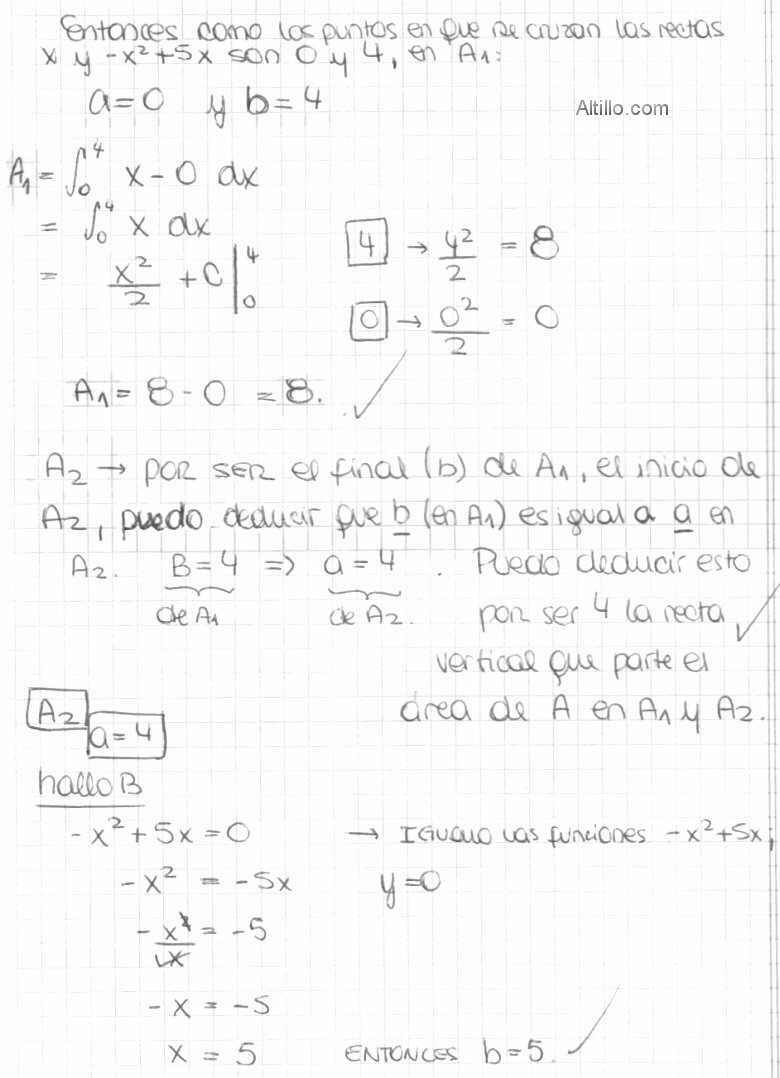 Entonces como los puntos en que se cruzan las rectas
x y -x²+5x son 0 y 4, en A₁:
a=0 y b=4
Altillo.com
A₁ = ∫₀⁴ x-0 dx
= ∫₀⁴ x dx
= x²/2 + C |₀⁴
4 → 4²/2 = 8
0 → 0²/2 = 0
A₁ = 8-0 = 8. ✓
A₂ → por ser el final (b) de A₁, el inicio de
A₂, puedo deducir que b (en A₁) es igual a a en
A₂. B=4 ⇒ a=4. Puedo deducir esto
de A₁ de A₂. por ser 4 la recta ✓
vertical que parte el
área de A en A₁ y A₂.
A₂
a=4
hallo B
-x²+5x=0 → Igualo las funciones -x²+5x;
-x² = -5x y=0
-x²/x = -5
-x = -5
x = 5 ENTONCES b=5. ✓